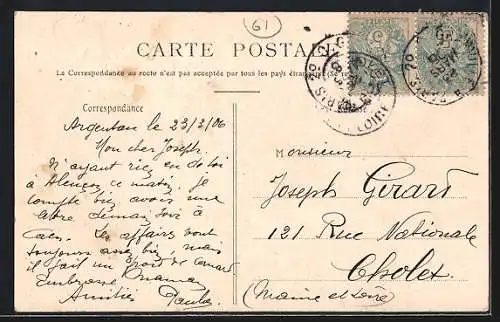 61
CARTE POSTALE
La Correspondance au recto n'est pas acceptée par tous les pays étrangers (Se re
Correspondance
Argentan le 23/2/06
Mon cher Joseph
N'ayant rien de toi
à Alençon ce matin, je
compte bien avoir une
lettre demain soir à
Caen. Les affaires vont
toujours assez bien, mais
il fait un froid de canard
Embrasse Maman
Amitiés
Monsieur
Joseph Girard
121 Rue Nationale
Cholet
(Maine et Loire)